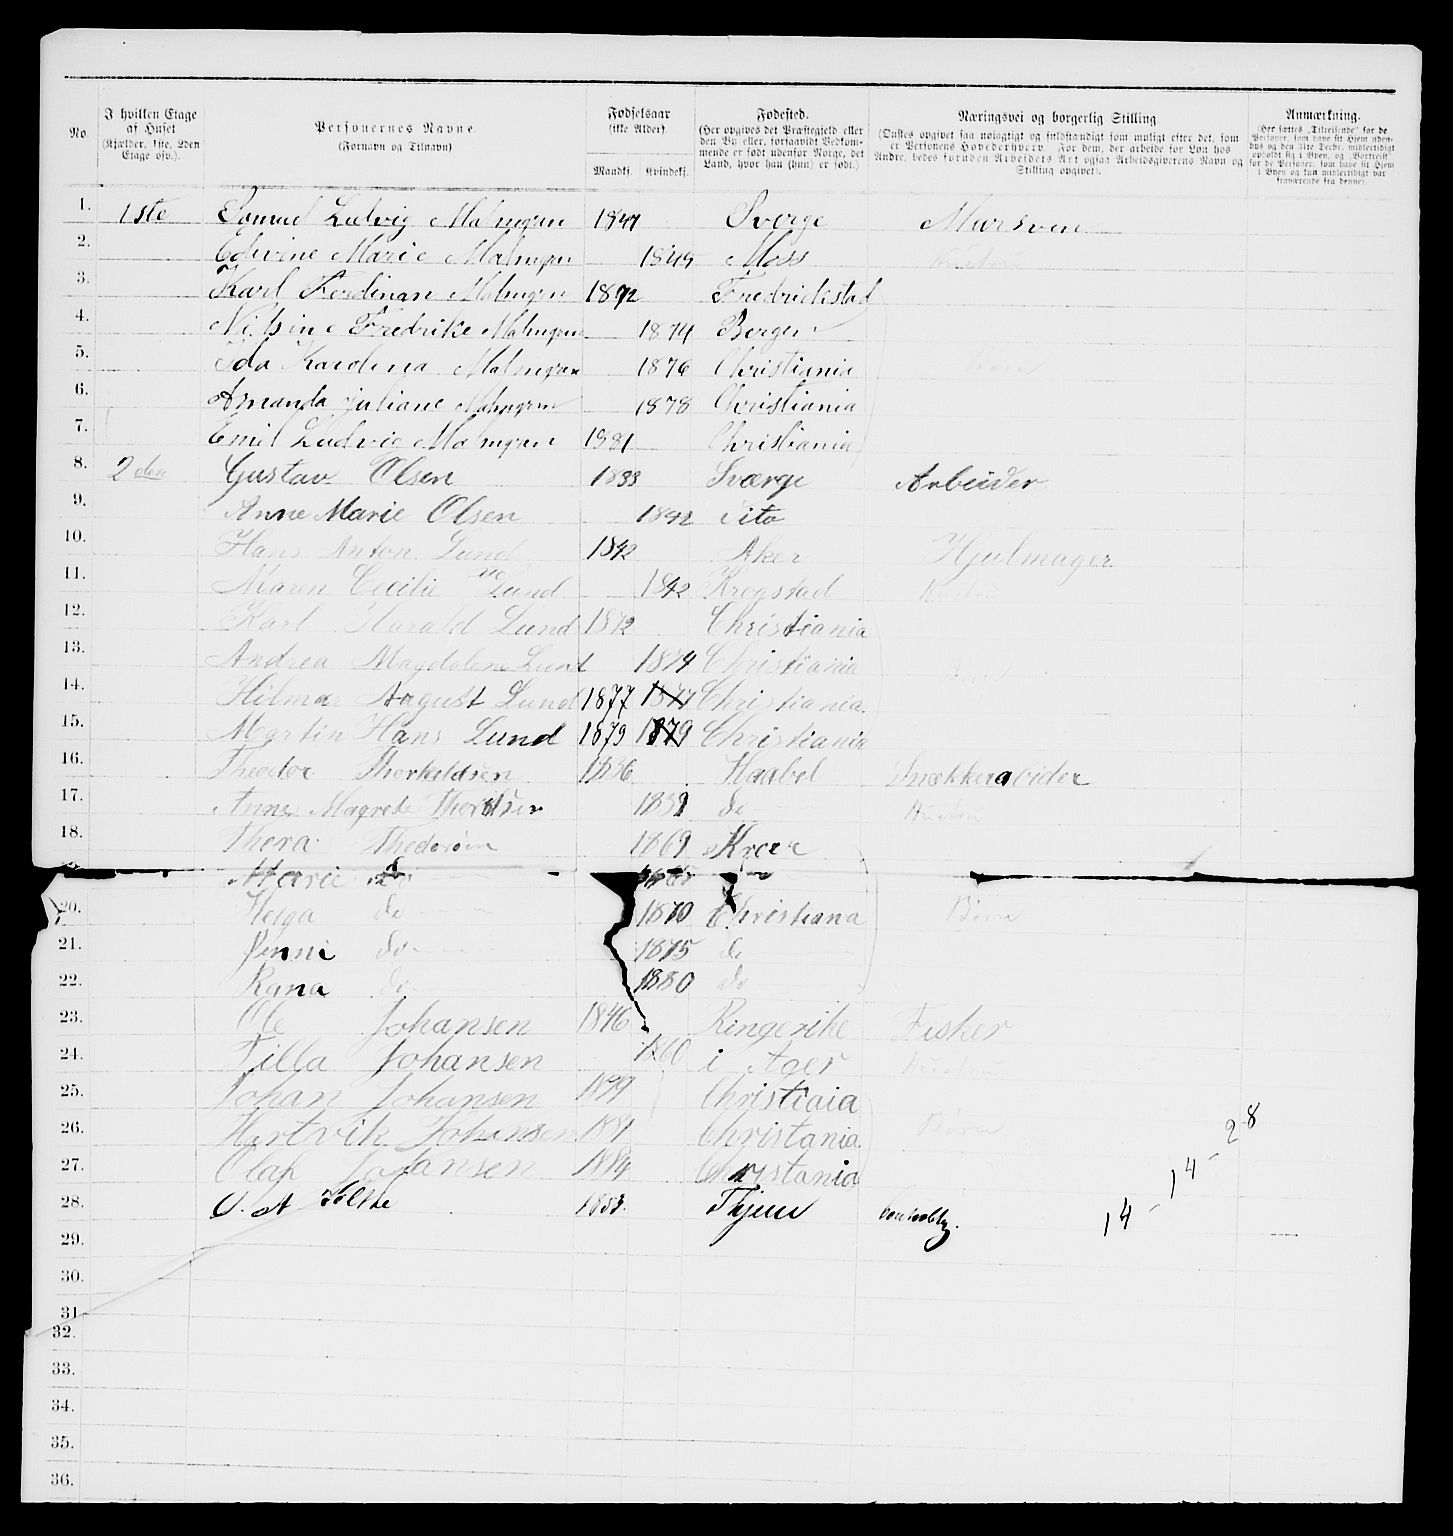 No.
I hvilken Etage af Huset (Kjælder, 1ste, 2den Etage osv.).
Personernes Navne.
(Fornavn og Tilnavn)
Fødselsaar
(ikke Alder).
Mandkj. Kvindekj.
Fødested.
(Her opgives det Præstegjeld eller den By eller, forsaavidt Vedkommende er født udenfor Norge, det Land, hvor han (hun) er født.)
Næringsvei og borgerlig Stilling
(Ønskes opgivet saa nøiagtigt og fuldstændigt som muligt efter det, som er Personens Hovederhverv. For dem, der arbeide for Løn hos Andre, bedes foruden Arbeidets Art ogsaa Arbeidsgiverens Navn og Stilling opgivet).
Anmærkning.
(Her sættes „Tilreisende“ for de Personer, som have sit Hjem udenbys og den 31te Decbr. midlertidigt opholdt sig i Byen, og „Bortreist“ for de Personer, som have sit Hjem i Byen og kun midlertidigt var fraværende fra denne)
1. 1ste Ludvig Malmgren 1847 Sverge Mursven
2. Marie Malmgren 1845 Moss Hustru
3. Karl Ferdinan Malmgren 1872 Fredrickstad
4. Nilsine Fredrike Malmgren 1874 Bergen
5. Ida Karolina Malmgren 1876 Christiania Børn
6. Amanda Juliane Malmgren 1878 Christiania
7. Emil Ludvig Malmgren 1881 Christiania
8. 2den Gustav Olsen 1833 Sværge Arbeider
9. Anne Marie Olsen dito
10. Hans Anton Lund 1842 Aker Hjulmager
11. Maren Cecilie Lund 1842 Krogstad Hustru
12. Karl Harald Lund 1872 Christiania
13. Andrea Magdalene Lund 1874 Christiania Børn
14. Hilmar August Lund 1877 1877 Christiania
15. Martin Hans Lund 1879 1879 Christiania
16. Theodor Thorkeldsen 1836 Haabel Snækkerabider
17. Anne Magrete 1839 do Hustru
18. Thora 1869
Marie do
20. Helga do 1870 Christiana Børn
21. Jenni do 1875 do
22. Ragna do 1880 do
23. Ole Johansen 1846 Ringerike Fisker
24. Tilla Johansen 1860 i Ager Hustru
25. Johan Johansen 1879 Christiaia
26. Hartvik Johansen 1881 Christania Børn
27. Olaf Johansen 1884 Christania
28. O. A 1853
29.
30.
31.
32.
33.
34.
35.
36.
14 - 14 - 28